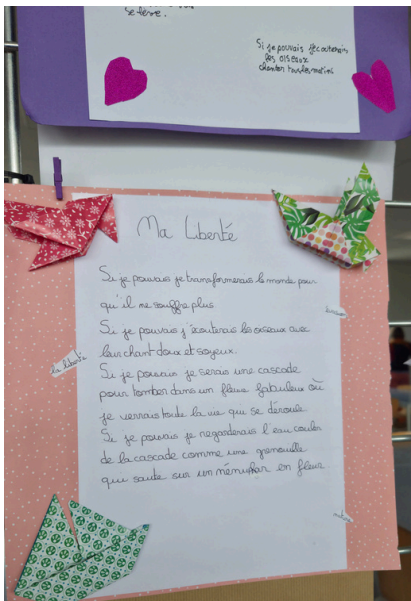 se lève.
Si je pouvais j'écouterais
les oiseaux
chanter tous les matins
Ma Liberté
Si je pouvais je transformerais le monde pour
qu'il ne souffre plus.
Si je pouvais j'écouterais les oiseaux avec
leur chant doux et soyeux.
Si je pouvais je serais une cascade
pour tomber dans un fleuve fabuleux où
je verrais toute la vie qui se déroule
Si je pouvais je regarderais l'eau couler
de la cascade comme une grenouille
qui saute sur un nénuphar en fleur
la liberté